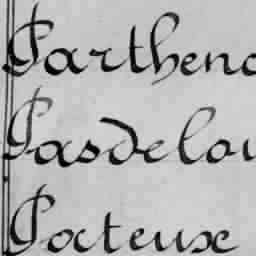 Parthena
Pasdelou
Pocteuse